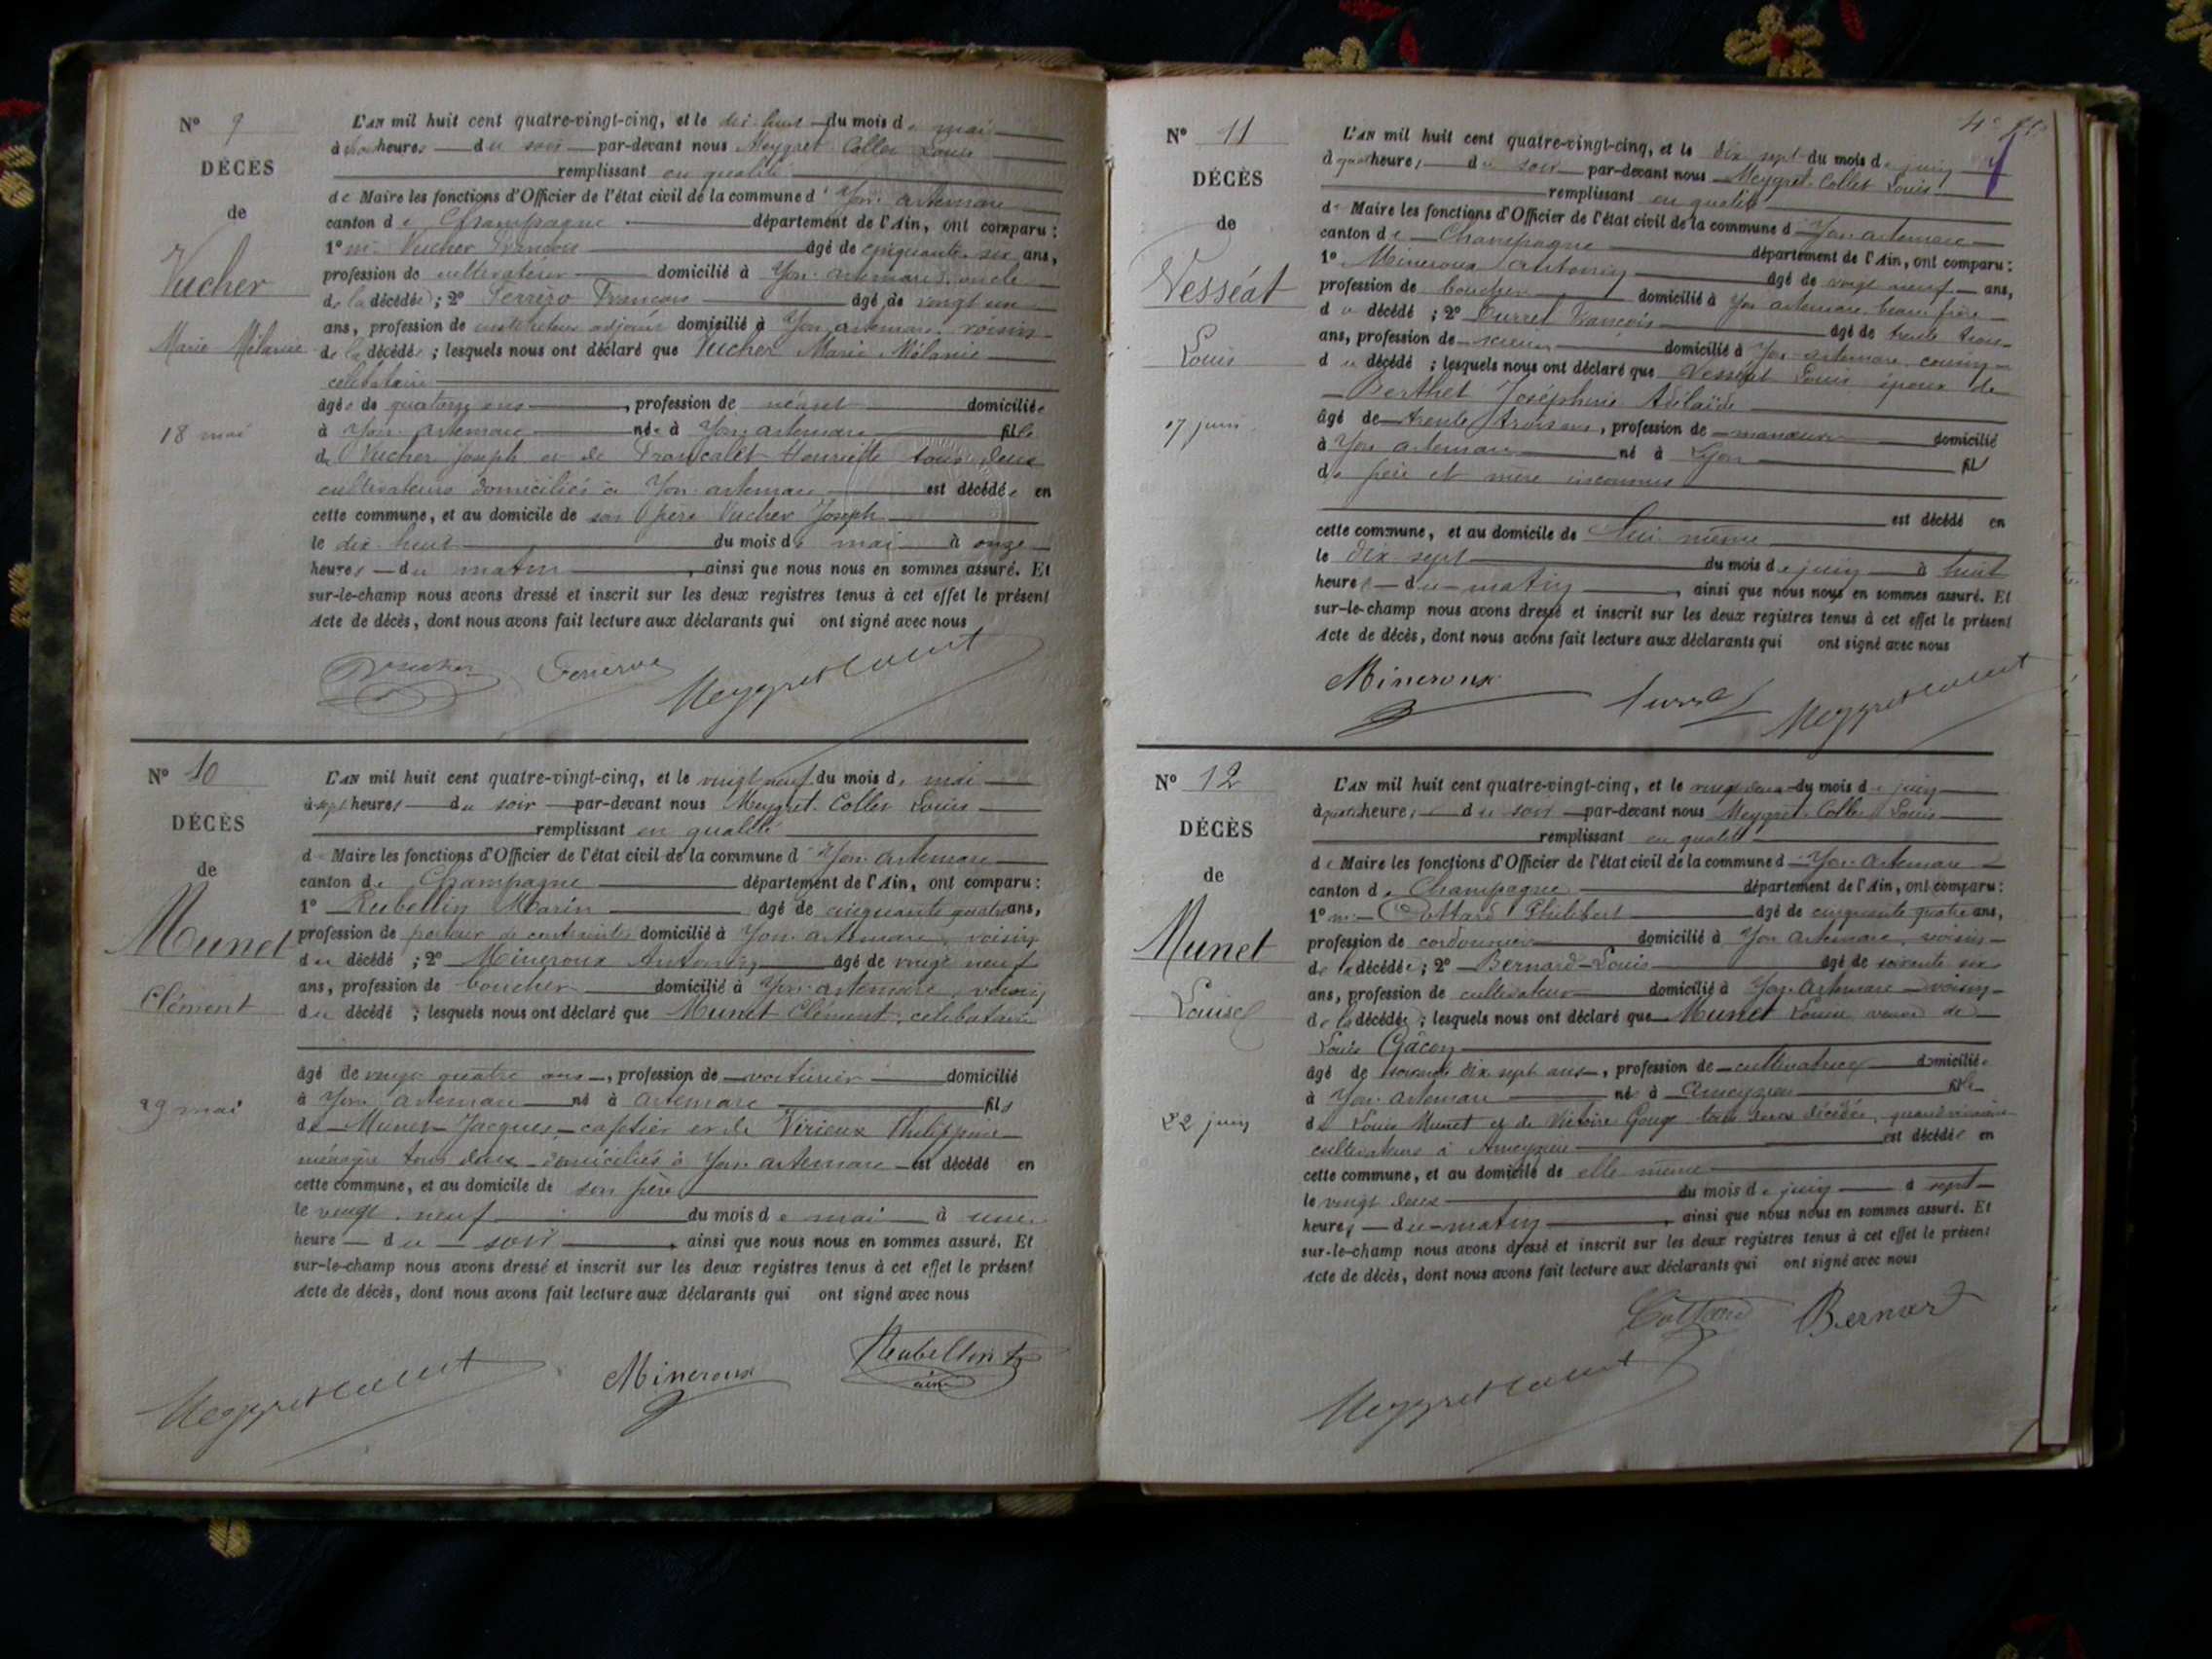 N° 9
DÉCÈS
de
Vucher
Marie Mélanie
18 mai
L'AN mil huit cent quatre-vingt-cinq, et le dix huit du mois de mai
à heures du soir par-devant nous Meygret Collet Louis
remplissant en qualité
de Maire les fonctions d'Officier de l'état civil de la commune d'Yon artemare
canton de Champagne département de l'Ain, ont comparu :
1° m. Vucher âgé de cinquante six ans,
profession de cultivateur domicilié à Yon artemare, oncle
de la décédée ; 2° Ferrero François âgé de vingt un
ans, profession de instituteur adjoint domicilié à Yon artemare, voisin
de la décédée ; lesquels nous ont déclaré que Vucher Marie Mélanie
célibataire
âgée de quatorze ans, profession de néant domiciliée
à Yon artemare née à Yon artemare fille
de Vucher Joseph et de Francalet Henriette tous deux
cultivateurs domiciliés à Yon artemare est décédée en
cette commune, et au domicile de son père Vucher Joseph
le dix huit du mois de mai à onze
heures du matin, ainsi que nous nous en sommes assuré. Et
sur-le-champ nous avons dressé et inscrit sur les deux registres tenus à cet effet le présent
Acte de décès, dont nous avons fait lecture aux déclarants qui ont signé avec nous
Meygret Collet
N° 10
DÉCÈS
de
Munet
Clément
29 mai
L'AN mil huit cent quatre-vingt-cinq, et le vingt neuf du mois de mai
à sept heures du soir par-devant nous Meygret Collet Louis
remplissant en qualité
de Maire les fonctions d'Officier de l'état civil de la commune d'Yon artemare
canton de Champagne département de l'Ain, ont comparu :
1° Rubellin Marin âgé de cinquante quatre ans,
profession de porteur de contraintes domicilié à Yon artemare, voisin
du décédé ; 2° Mineroux Antonin âgé de vingt neuf
ans, profession de boucher domicilié à Yon artemare, voisin
du décédé ; lesquels nous ont déclaré que Munet Clément, célibataire
âgé de vingt quatre ans, profession de voiturier domicilié
à Yon artemare né à artemare fils
de Munet Jacques, cafetier et de Virieux Philippine
ménagère tous deux domiciliés à Yon artemare est décédé en
cette commune, et au domicile de son père
le vingt neuf du mois de mai à une
heure du soir, ainsi que nous nous en sommes assuré. Et
sur-le-champ nous avons dressé et inscrit sur les deux registres tenus à cet effet le présent
Acte de décès, dont nous avons fait lecture aux déclarants qui ont signé avec nous
Meygret Collet Mineroux Rubellin
N° 11
DÉCÈS
de
Vesséat
Louis
17 juin
L'AN mil huit cent quatre-vingt-cinq, et le dix sept du mois de juin
à quatre heures du soir par-devant nous Meygret Collet Louis
remplissant en qualité
de Maire les fonctions d'Officier de l'état civil de la commune d'Yon artemare
canton de Champagne département de l'Ain, ont comparu :
1° Mineroux Antonin âgé de vingt neuf ans,
profession de boucher domicilié à Yon artemare, beau frère
du décédé ; 2° Curret François âgé de trente trois
ans, profession de domicilié à Yon artemare, cousin
du décédé ; lesquels nous ont déclaré que Vesséat Louis époux de
Berthet Joséphine Adélaïde
âgé de trente trois ans, profession de manœuvre domicilié
à Yon artemare né à Lyon fils
de père et mère inconnus
est décédé en
cette commune, et au domicile de lui même
le dix sept du mois de juin à huit
heures du matin, ainsi que nous nous en sommes assuré. Et
sur-le-champ nous avons dressé et inscrit sur les deux registres tenus à cet effet le présent
Acte de décès, dont nous avons fait lecture aux déclarants qui ont signé avec nous
Mineroux Meygret Collet
N° 12
DÉCÈS
de
Munet
Louise
22 juin
L'AN mil huit cent quatre-vingt-cinq, et le vingt deux du mois de juin
à quatre heures du soir par-devant nous Meygret Collet Louis
remplissant en qualité
de Maire les fonctions d'Officier de l'état civil de la commune d'Yon Artemare
canton de Champagne département de l'Ain, ont comparu :
1° m. Cottard Philibert âgé de cinquante quatre ans,
profession de cordonnier domicilié à Yon Artemare, voisin
de la décédée ; 2° Bernard Louis âgé de soixante six
ans, profession de cultivateur domicilié à Yon Artemare voisin
de la décédée ; lesquels nous ont déclaré que Munet Louise veuve de
Louis Gâcon
âgé de soixante dix sept ans, profession de cultivatrice domiciliée
à Yon artemare né à Ameyzieu fille
de Louis Munet et de Victoire Gouge tous deux décédés, quand vivaient
cultivateurs à Ameyzieu est décédée en
cette commune, et au domicile de elle même
le vingt deux du mois de juin à sept
heures du matin, ainsi que nous nous en sommes assuré. Et
sur-le-champ nous avons dressé et inscrit sur les deux registres tenus à cet effet le présent
Acte de décès, dont nous avons fait lecture aux déclarants qui ont signé avec nous
Cottard Bernard
Meygret Collet